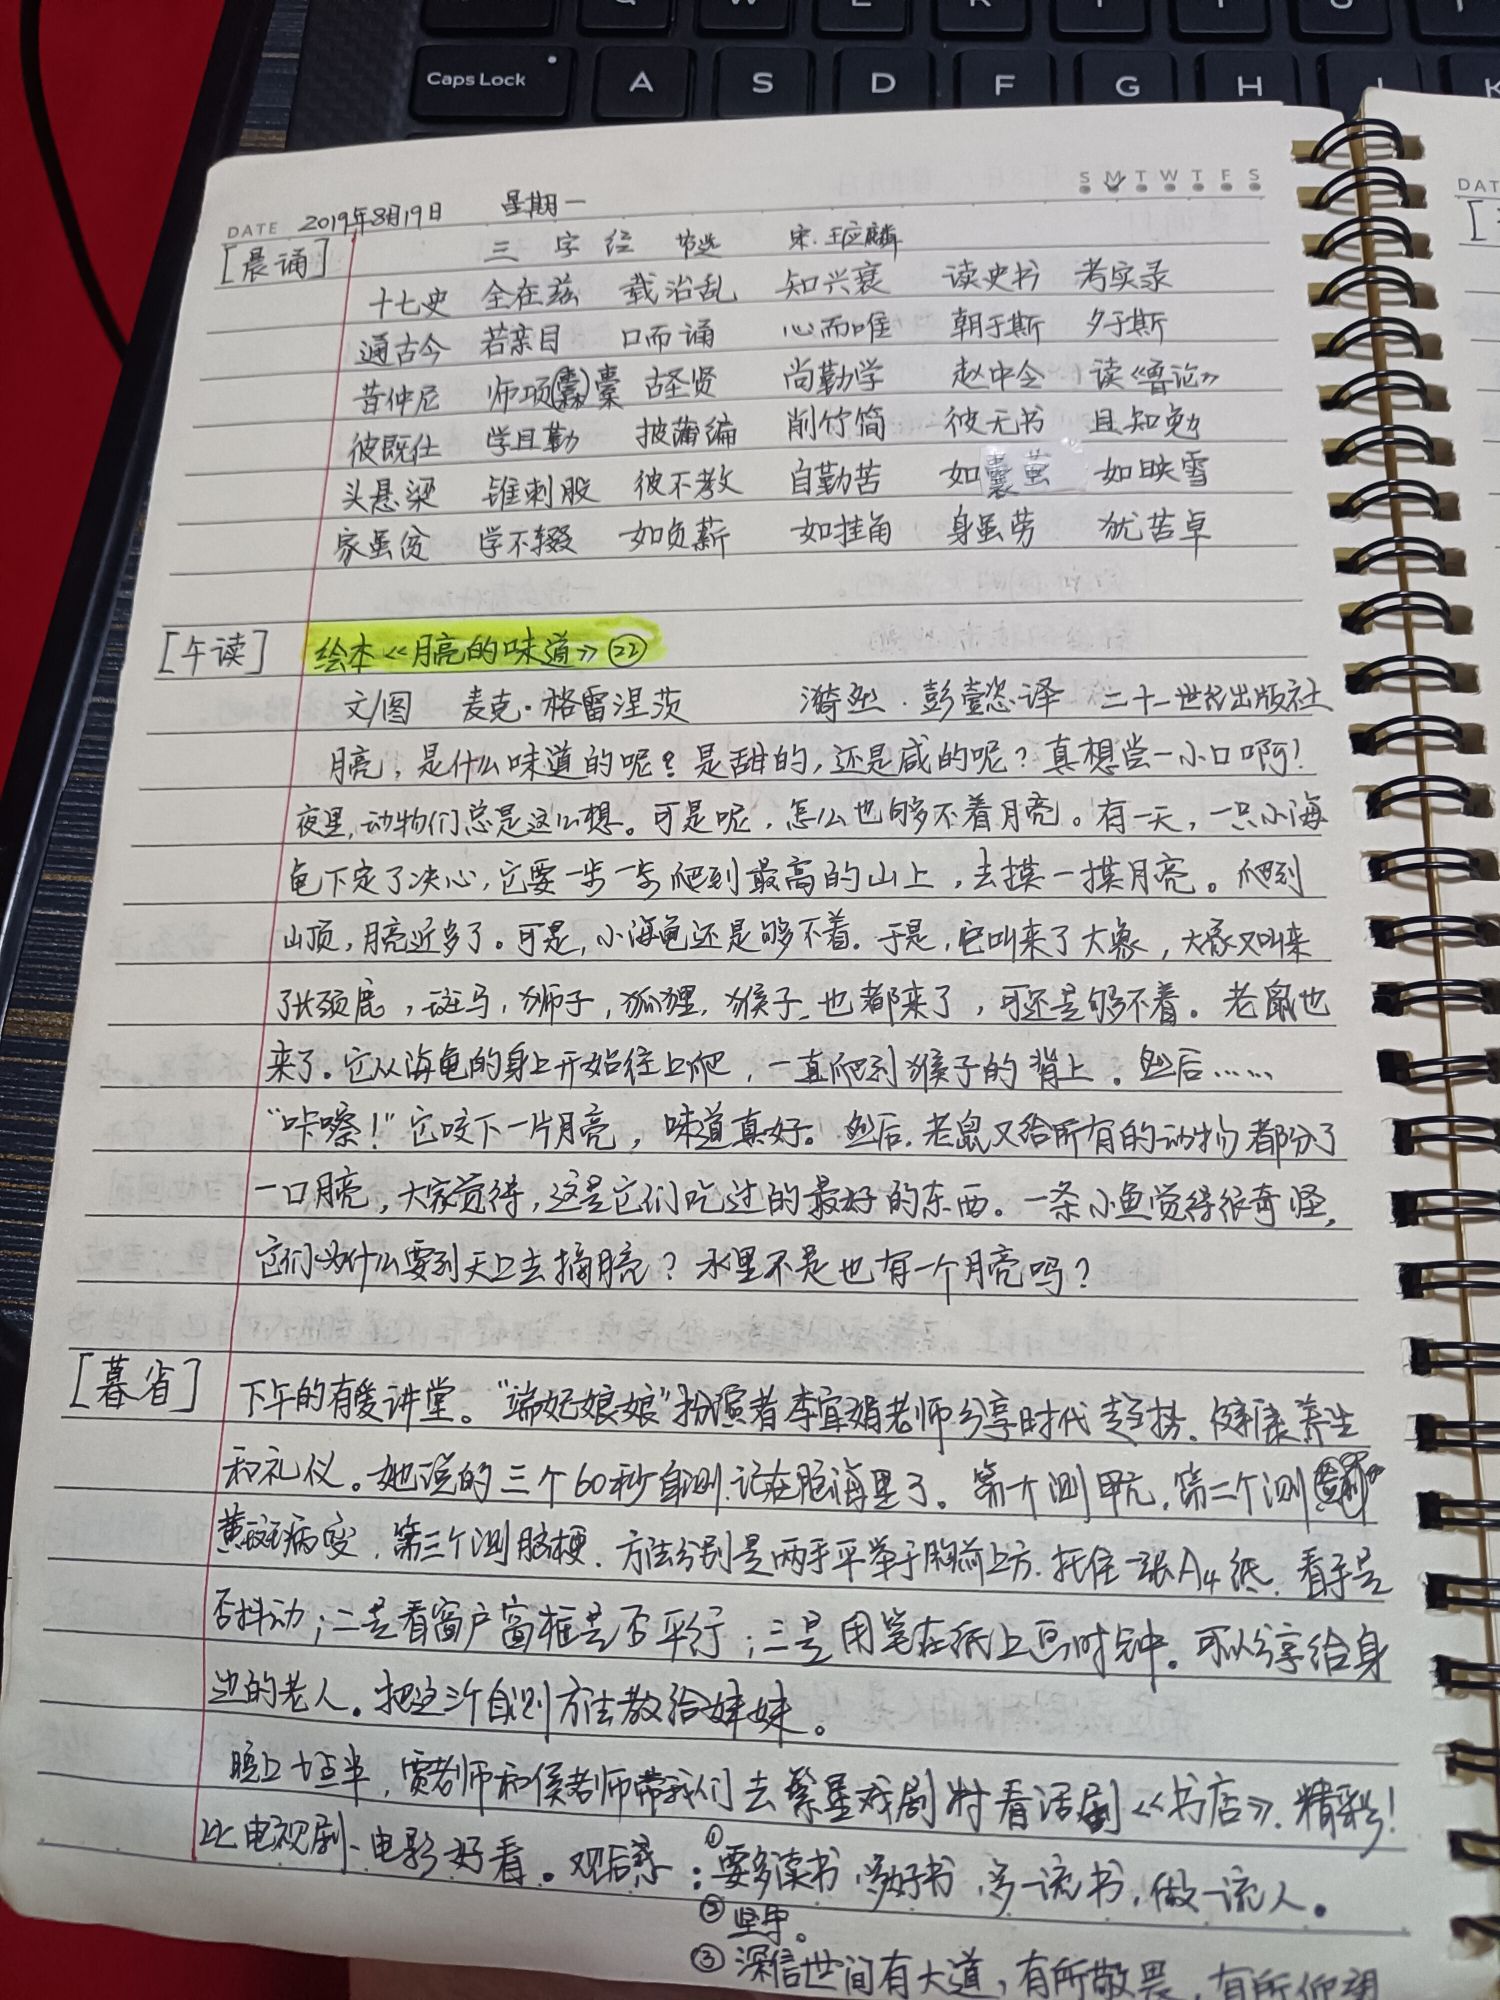 Caps Lock A S D F G H J K
S M T W T F S
DATE 2019年8月19日 星期一
[晨诵] 三字经 节选 宋·王应麟
十七史 全在兹 载治乱 知兴衰 读史书 考实录
通古今 若亲目 口而诵 心而唯 朝于斯 夕于斯
昔仲尼 师项橐 古圣贤 尚勤学 赵中令 读《鲁论》
彼既仕 学且勤 披蒲编 削竹简 彼无书 且知勉
头悬梁 锥刺股 彼不教 自勤苦 如囊萤 如映雪
家虽贫 学不辍 如负薪 如挂角 身虽劳 犹苦卓
[午读] 绘本《月亮的味道》㉒
文/图 麦克·格雷涅茨 漪然·彭懿 译 二十一世纪出版社
月亮，是什么味道的呢？是甜的，还是咸的呢？真想尝一小口啊！
夜里，动物们总是这么想。可是呢，怎么也够不着月亮。有一天，一只小海
龟下定了决心，它要一步一步爬到最高的山上，去摸一摸月亮。爬到
山顶，月亮近多了。可是，小海龟还是够不着。于是，它叫来了大象，大象又叫来
了长颈鹿，斑马，狮子，狐狸，猴子也都来了，可还是够不着。老鼠也
来了。它从海龟的身上开始往上爬，一直爬到猴子的背上。然后……
“咔嚓！”它咬下一片月亮，味道真好。然后，老鼠又给所有的动物都分了
一口月亮，大家觉得，这是它们吃过的最好的东西。一条小鱼觉得很奇怪，
它们为什么要到天上去摘月亮？水里不是也有一个月亮吗？
[暮省] 下午的有爱讲堂。“端妃娘娘”扮演者李宜娟老师分享时代趋势、健康养生
和礼仪。她说的三个60秒自测，记在脑海里了。第一个测甲亢，第二个测
黄斑病变，第三个测脑梗。方法分别是两手平举于胸前上方，托住一张A4纸，看手是
否抖动；二是看窗户窗框是否平行；三是用笔在纸上画时钟。可以分享给身
边的老人。把这三个自测方法教给妹妹。
晚上七点半，贾老师和侯老师带我们去繁星戏剧村看话剧《书店》，精彩！
比电视剧、电影好看。观后感：①要多读书，多好书，多一流书，做一流人。
②坚守。
③深信世间有大道，有所敬畏，有所仰望